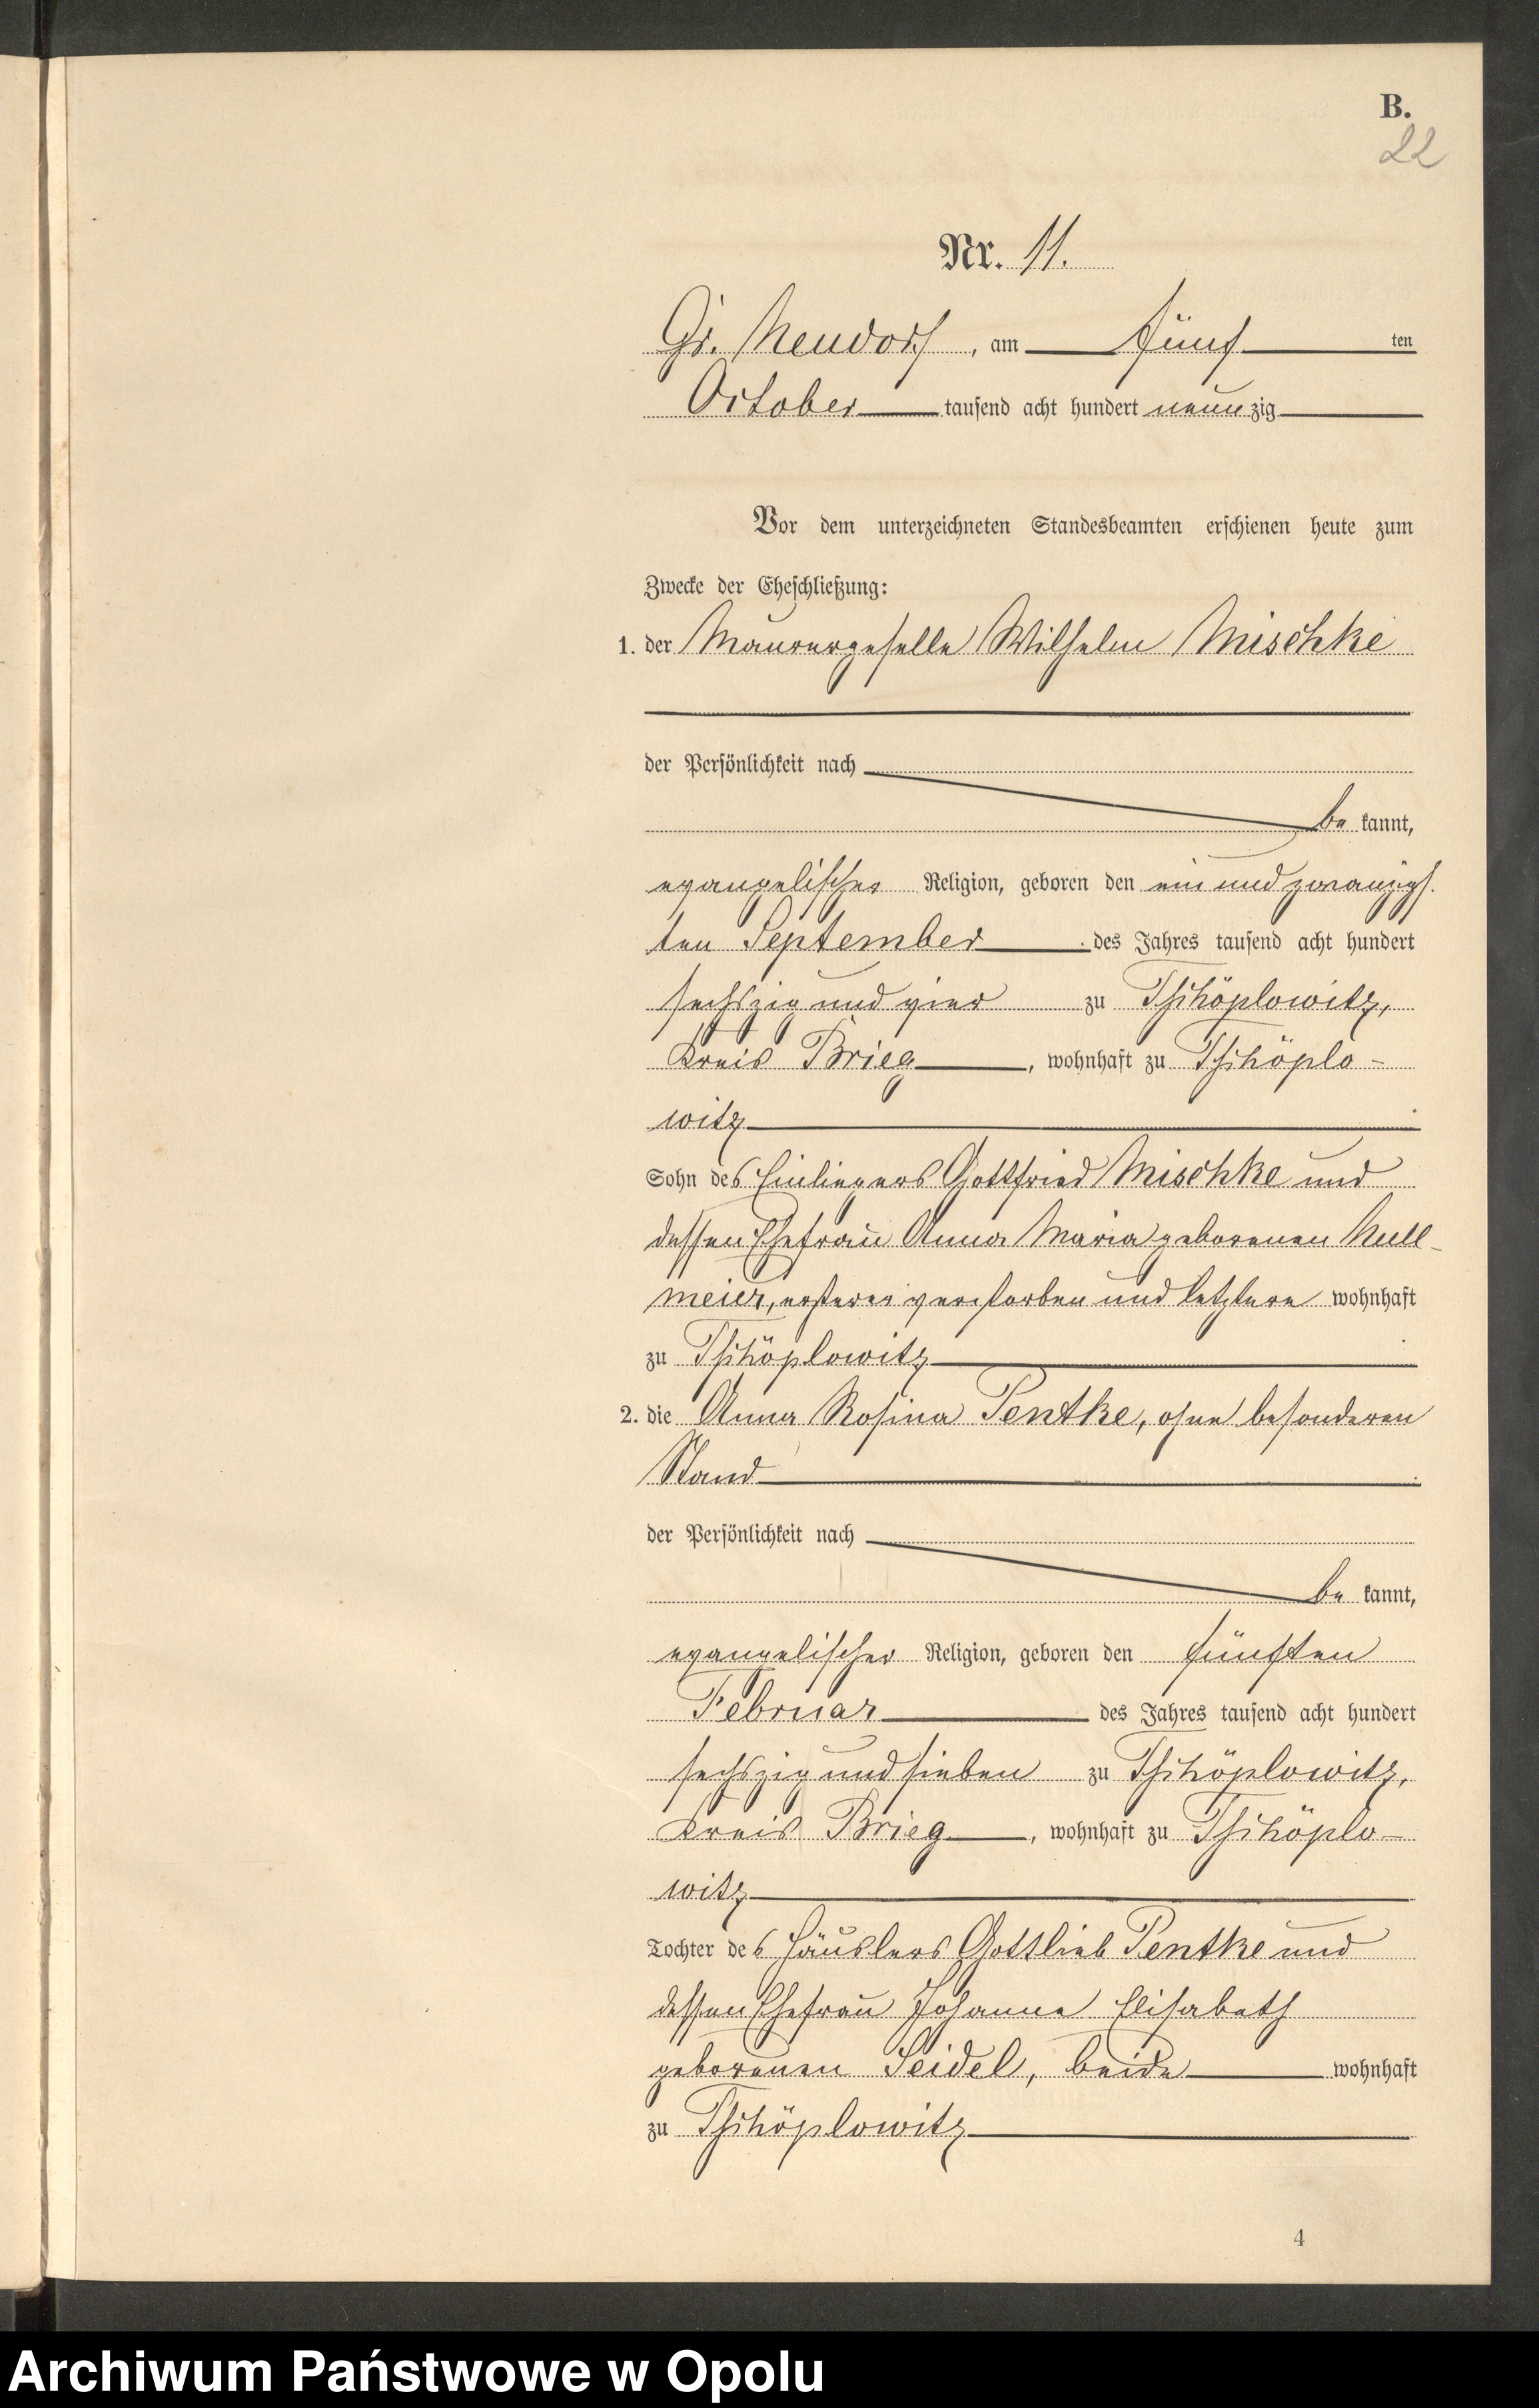 B.
22
Nr. 11.
Gr. Neudorf, am fünf ten
October tausend acht hundert neunzig
Vor dem unterzeichneten Standesbeamten erschienen heute zum
Zwecke der Eheschließung:
1. der Maurergeselle Wilhelm Mischke
der Persönlichkeit nach
be kannt,
evangelischer Religion, geboren den ein und zwanzigs.
ten September des Jahres tausend acht hundert
sechszig und vier zu Tschöplowitz,
Kreis Brieg, wohnhaft zu Tschöplo-
witz
Sohn des Einliegers Gottfried Mischke und
dessen Ehefrau Anna Maria geborenen Kull-
meier, ersterer verstorben und letztere wohnhaft
zu Tschöplowitz
2. die Anna Rosina Pentke, ohne besonderen
Stand
der Persönlichkeit nach
be kannt,
evangelischer Religion, geboren den fünften
Februar des Jahres tausend acht hundert
sechszig und sieben zu Tschöplowitz,
Kreis Brieg, wohnhaft zu Tschöplo-
witz
Tochter des Häuslers Gottlieb Pentke und
dessen Ehefrau Johanne Elisabeth
geborenen Seidel, beide wohnhaft
zu Tschöplowitz
4
Archiwum Państwowe w Opolu